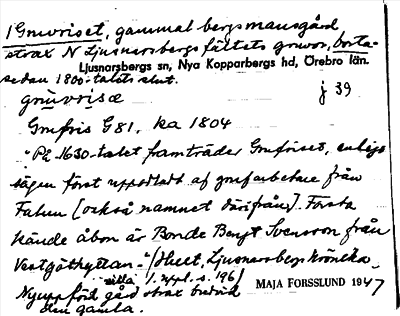 1 Gruvriset, gammal bergsmansgård
strax N Ljusnarsbergsfältets gruvor, borta
sedan 1800-talets slut.
Ljusnarsbergs sn, Nya Kopparbergs hd, Örebro län.
gru̅vri̅sɛ j 39
Grufris G 81, ka 1804
"På 1630-talet framträder Grufriset, enligt
sägen först upptaget af grufarbetare från
Falun [också namnet därifrån]. Första
kände åbon är Bonde Bengt Svensson från
Vestgöthyttan." (Hult, Ljusnarsbergs krönika,
1. uppl. s. 196)
Nyuppförd gård strax bredvid
den gamla.
MAJA FORSSLUND 1947